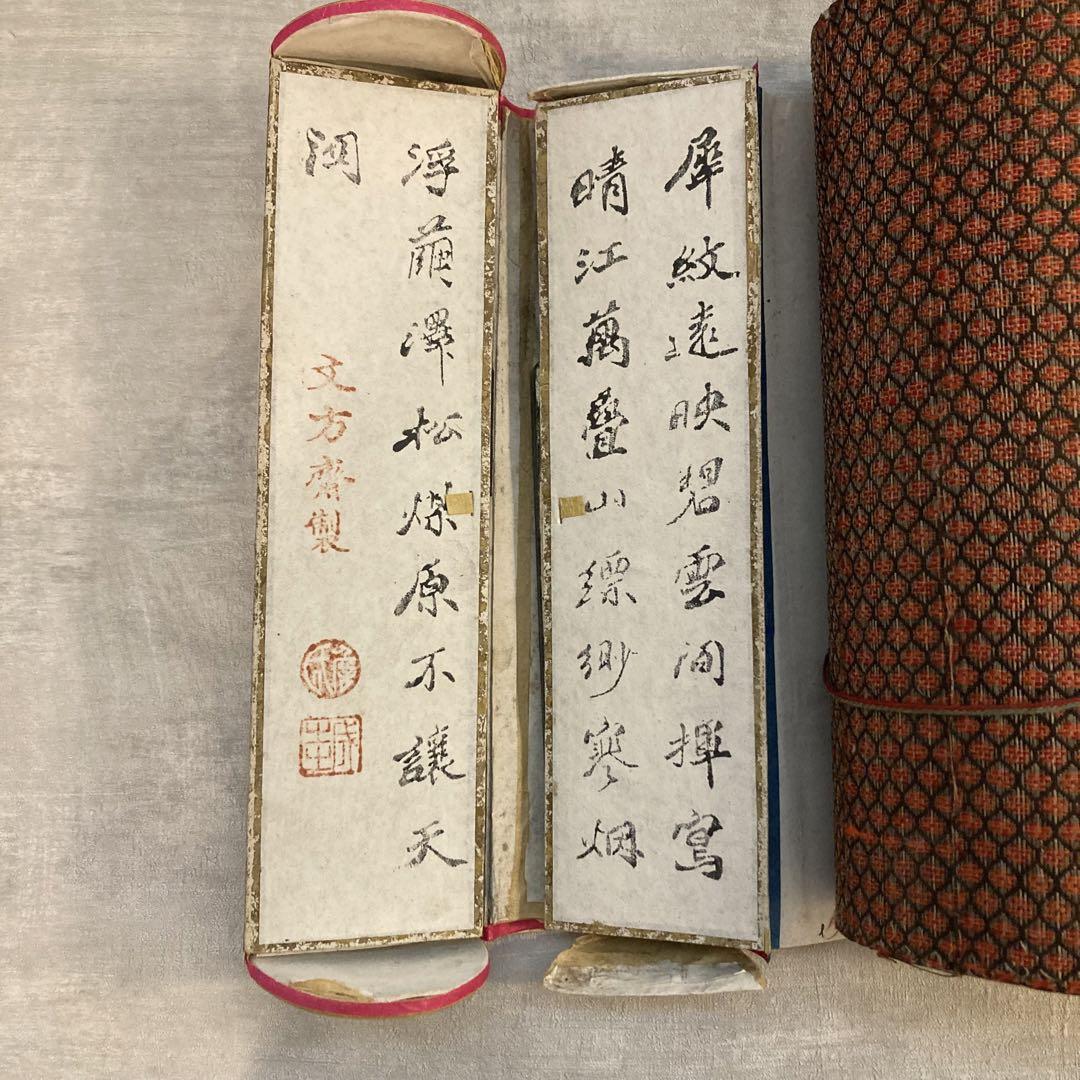 犀紋遠映碧雲間揮寫
晴江萬疊山縹緲寒烟
浮繭澤松煤原不讓天
文方齋製